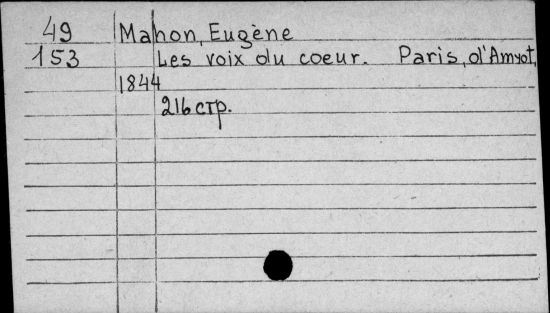 49 Mahon, Eugène
153 Les voix du coeur. Paris, d'Amyot,
1844
216 стр.